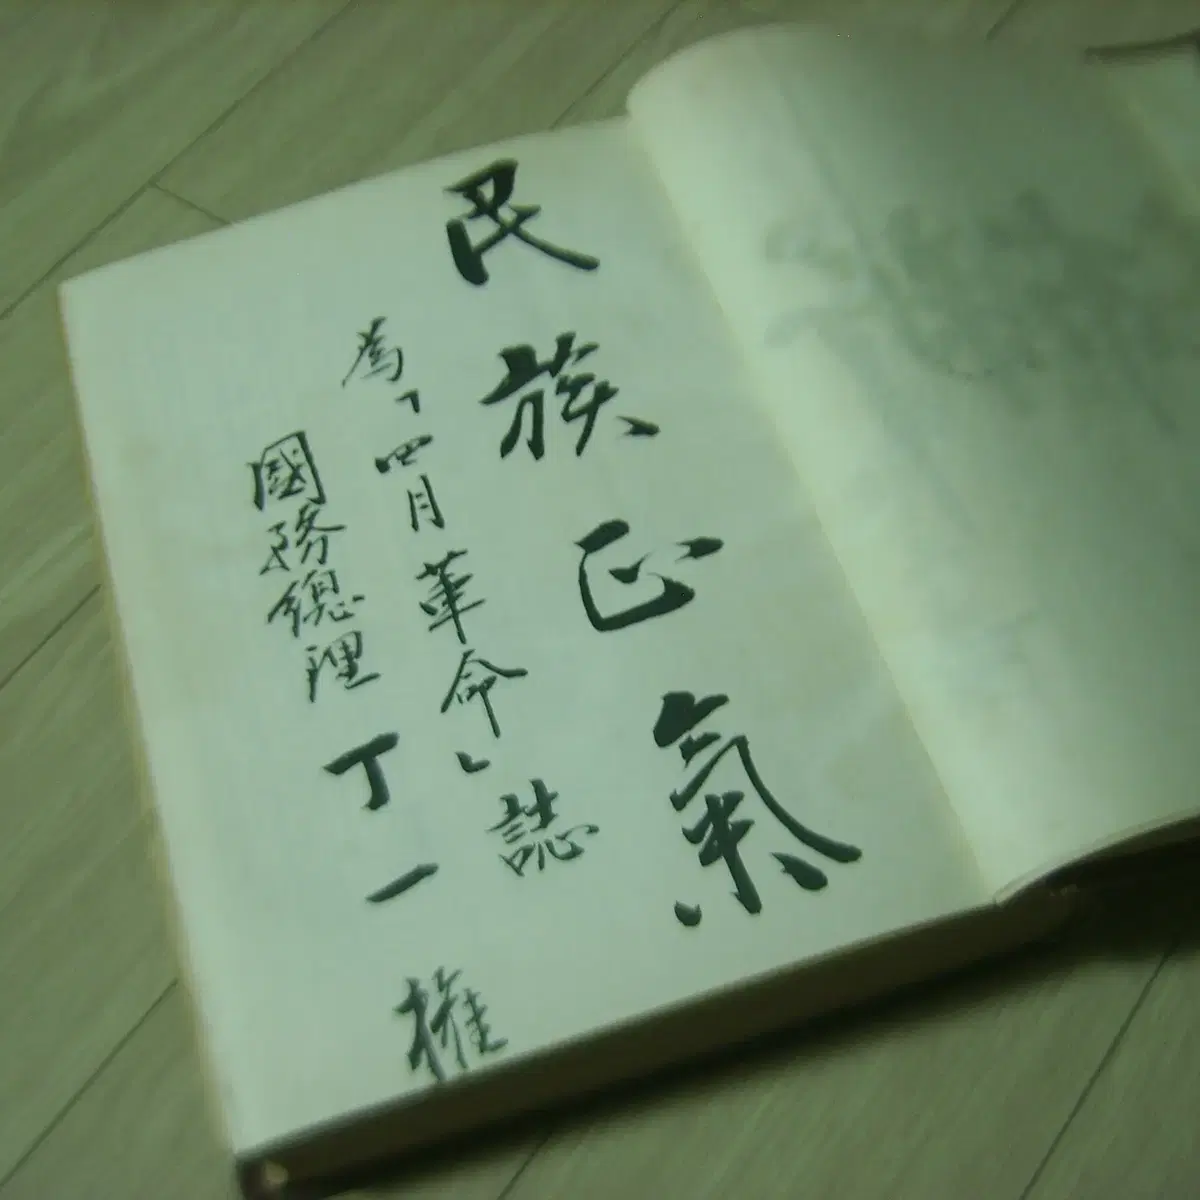 民族正氣
為「四月革命」誌
國務總理 丁一權